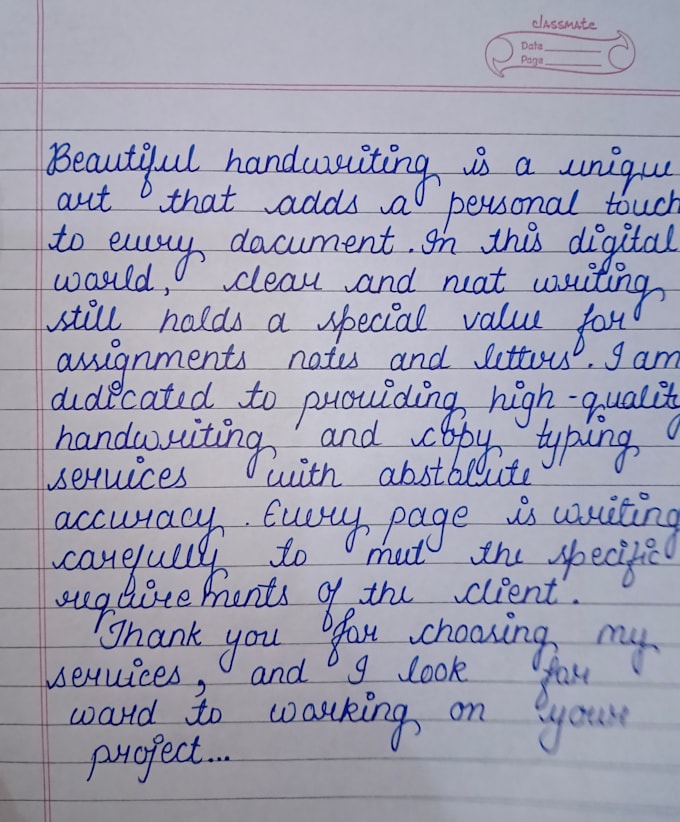 classmate
Date
Page
Beautiful handwriting is a unique
art that adds a personal touch
to every document. In this digital
world, clear and neat writing
still holds a special value for
assignments notes and letters. I am
dedicated to providing high-quality
handwriting and copy typing
services with abstolute
accuracy. Every page is writing
carefully to meet the specific
requirements of the client.
Thank you for choosing my
services, and I look for
ward to working on your
project...